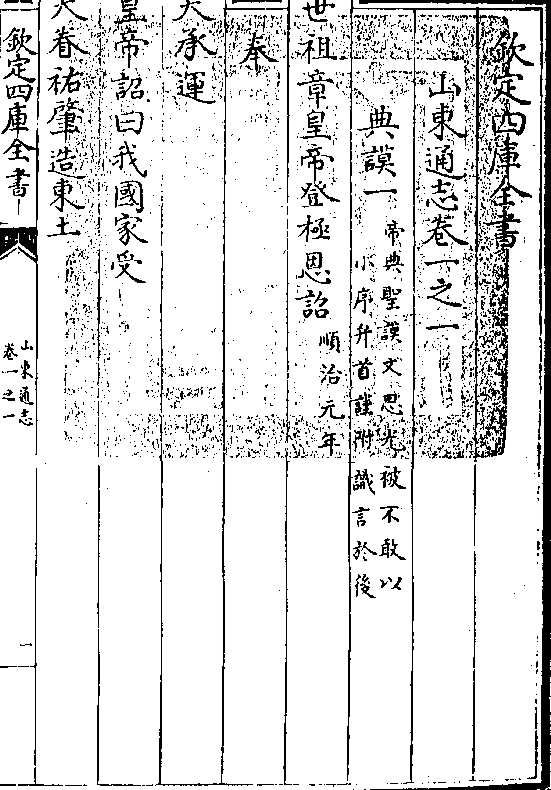 欽定四庫全書
山東通志卷一之一
典謨一
帝典聖謨文思光被不敢以
小序弁首謹附識言於後
世祖章皇帝登極恩詔順治元年
奉
天承運
皇帝詔曰我國家受
天眷祐肇造東土
欽定四庫全書
山東通志
卷一之一
一